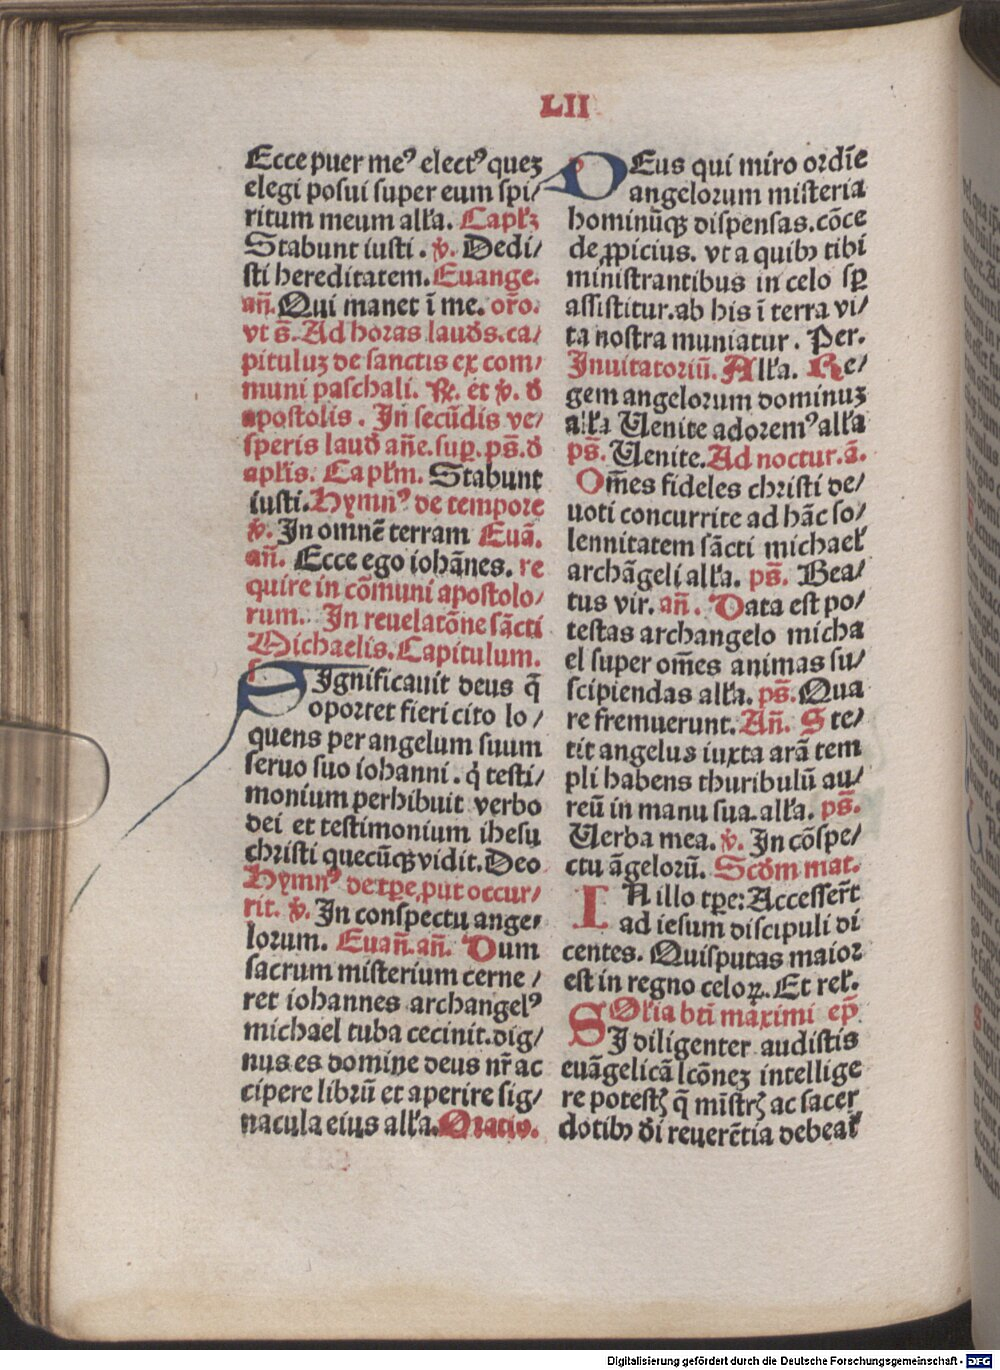 LII
Ecce puer meꝰ electꝰ queꝫ
elegi posui super eum spi/
ritum meum all'a. Capl'ꝫ
Stabunt iusti. ꝟ. Dedi/
sti hereditatem. Euange.
an̄. Qui manet ī me. or̄o.
vt s̄. Ad horas lauds. ca/
pituluꝫ de sanctis ex com/
muni paschali. ℟. et ꝟ. d
apostolis. In secūdis ve/
speris laud an̄e. sup. ps̄. d
apl'is. Capl'm. Stabunt
iusti. Hymnꝰ de tempore
ꝟ. In omnē terram Euā.
an̄. Ecce ego iohānes. re
quire in cōmuni apostolo/
rum. In reuelatōne sācti
Michaelis. Capitulum.
SIgnificauit deus q̄
oportet fieri cito lo/
quens per angelum suum
seruo suo iohanni. q̇ testi/
monium perhibuit verbo
dei et testimonium ihesu
christi quecūqꝫ vidit. Deo
Hymnꝰ de tꝑe, put occur/
rit. ꝟ. In conspectu ange/
lorum. Euan̄. an̄. Dum
sacrum misterium cerne/
ret iohannes archangelꝰ
michael tuba cecinit. dig/
nus es domine deus nr̄ ac
cipere librū et aperire sig/
nacula eius all'a. Oratio.
DEus qui miro ordīe
angelorum misteria
hominūqꝫ dispensas. cōce
de ꝓpicius. vt a quibꝫ tibi
ministrantibus in celo sꝑ
assistitur. ab his ī terra vi/
ta nostra muniatur. Per.
Inuitatoriū. All'a. Re/
gem angelorum dominuꝫ
all'a Uenite adoremꝰ all'a
ps̄. Uenite. Ad noctur. ā.
Om̄es fideles christi de/
uoti concurrite ad hāc so/
lennitatem sācti michael'
archāgeli all'a. ps̄. Bea/
tus vir. an̄. Data est po/
testas archangelo micha
el super om̄es animas su/
scipiendas all'a. ps̄. Qua
re fremuerunt. An̄. Ste/
tit angelus iuxta arā tem
pli habens thuribulū au/
reū in manu sua. all'a. ps̄.
Uerba mea. ꝟ. In cōspe/
ctu āgelorū. Scdm mat.
IN illo tꝑe: Accesser̄t
ad iesum discipuli di
centes. Quisputas maior
est in regno celoꝝ. Et rel'.
SOl'ia bt̄i maximi ep̄i
SI diligenter audistis
euāgelicā lcōneꝫ intellige
re potestꝭ q̄ mīstrꝭ ac sacer
dotibꝫ di reuerētia debeat
Digitalisierung gefördert durch die Deutsche Forschungsgemeinschaft - DFG